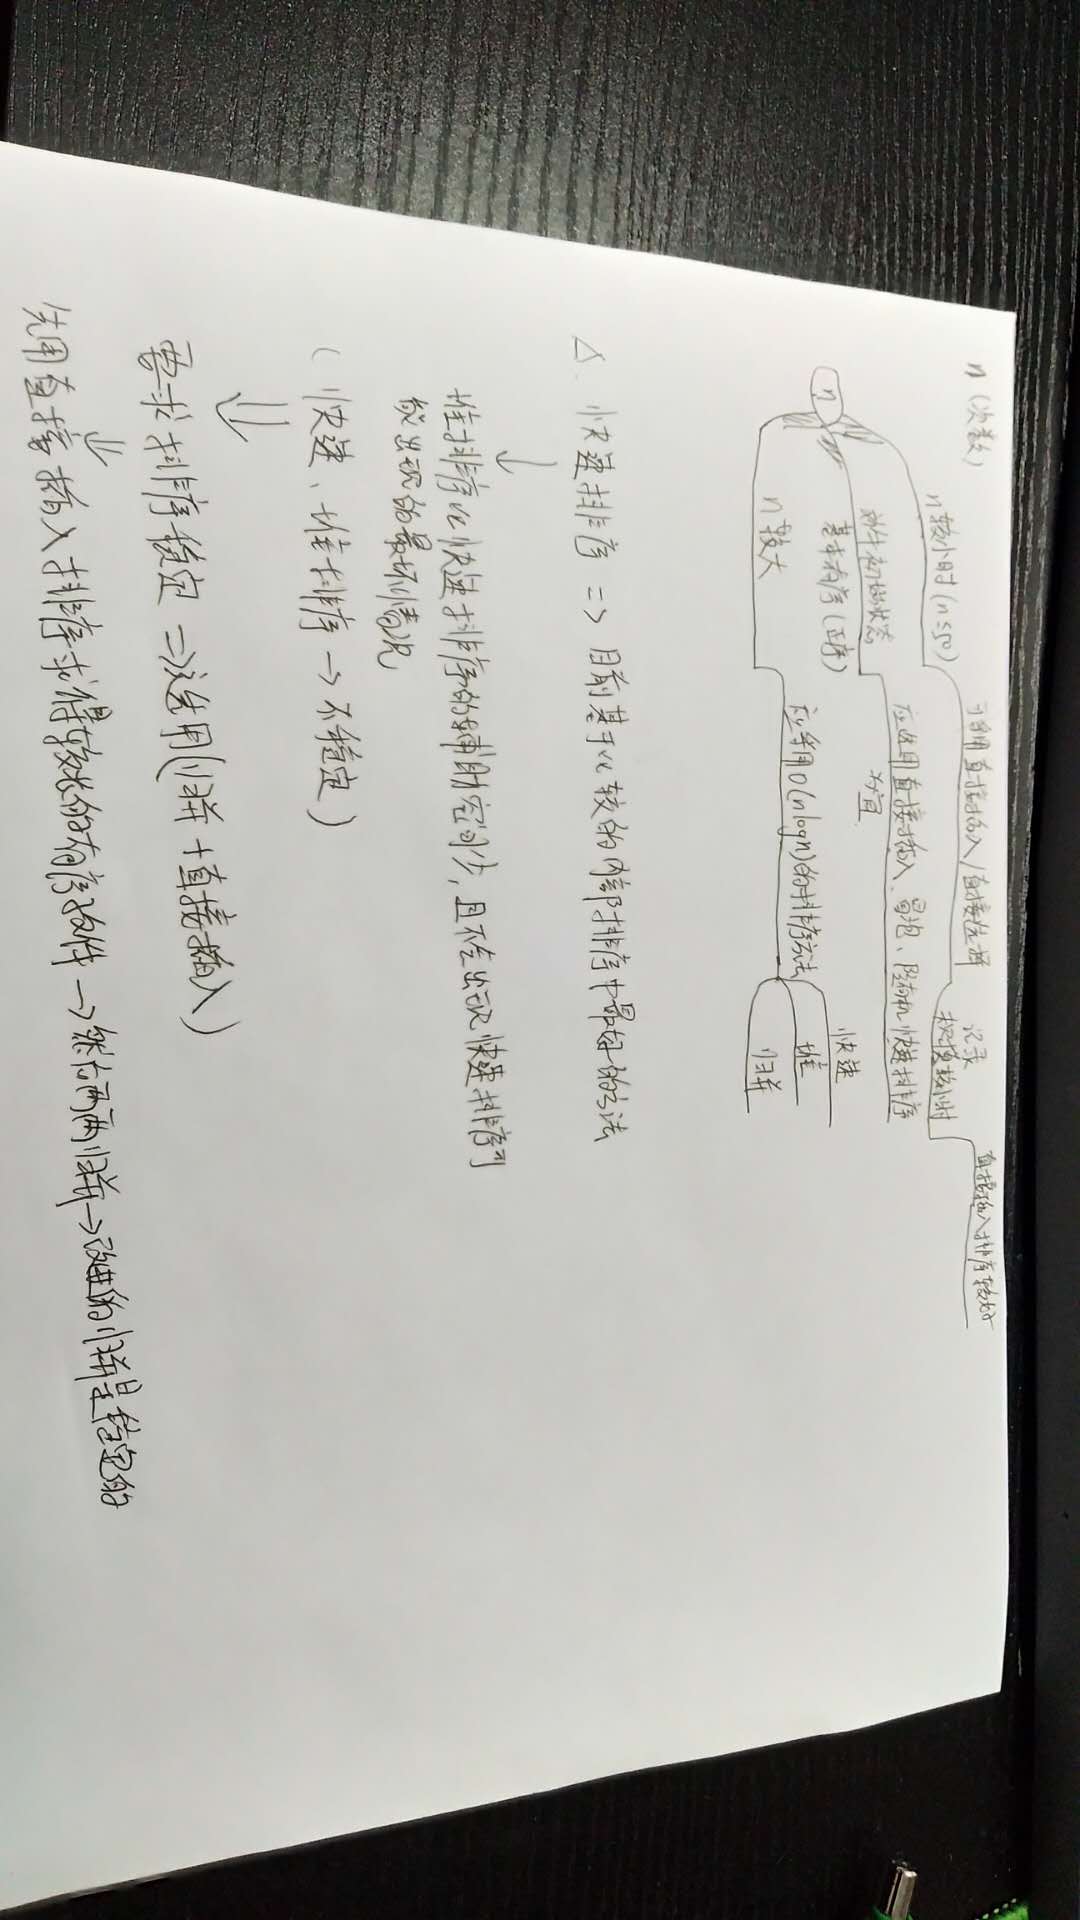 n (次数)
n较小时(n≤50)
可采用直接插入/直接选择
记录
规模较小时
直接插入排序较好
文件初始状态
基本有序(正序)
应选用直接插入、冒泡、随机快速排序
为宜
n
n较大
应采用O(nlogn)的排序方法
快速
堆
归并
△. 快速排序 => 目前基于比较的内部排序中最好的方法
↓
堆排序比快速排序的辅助空间少,且不会出现快速排序可
能出现的最坏情况
(快速、堆排序→不稳定)
⇓
要求排序稳定 => 选用(归并+直接插入)
⇓
先用直接插入排序求得较长的有序文件→然后两两归并→改进的归并是稳定的